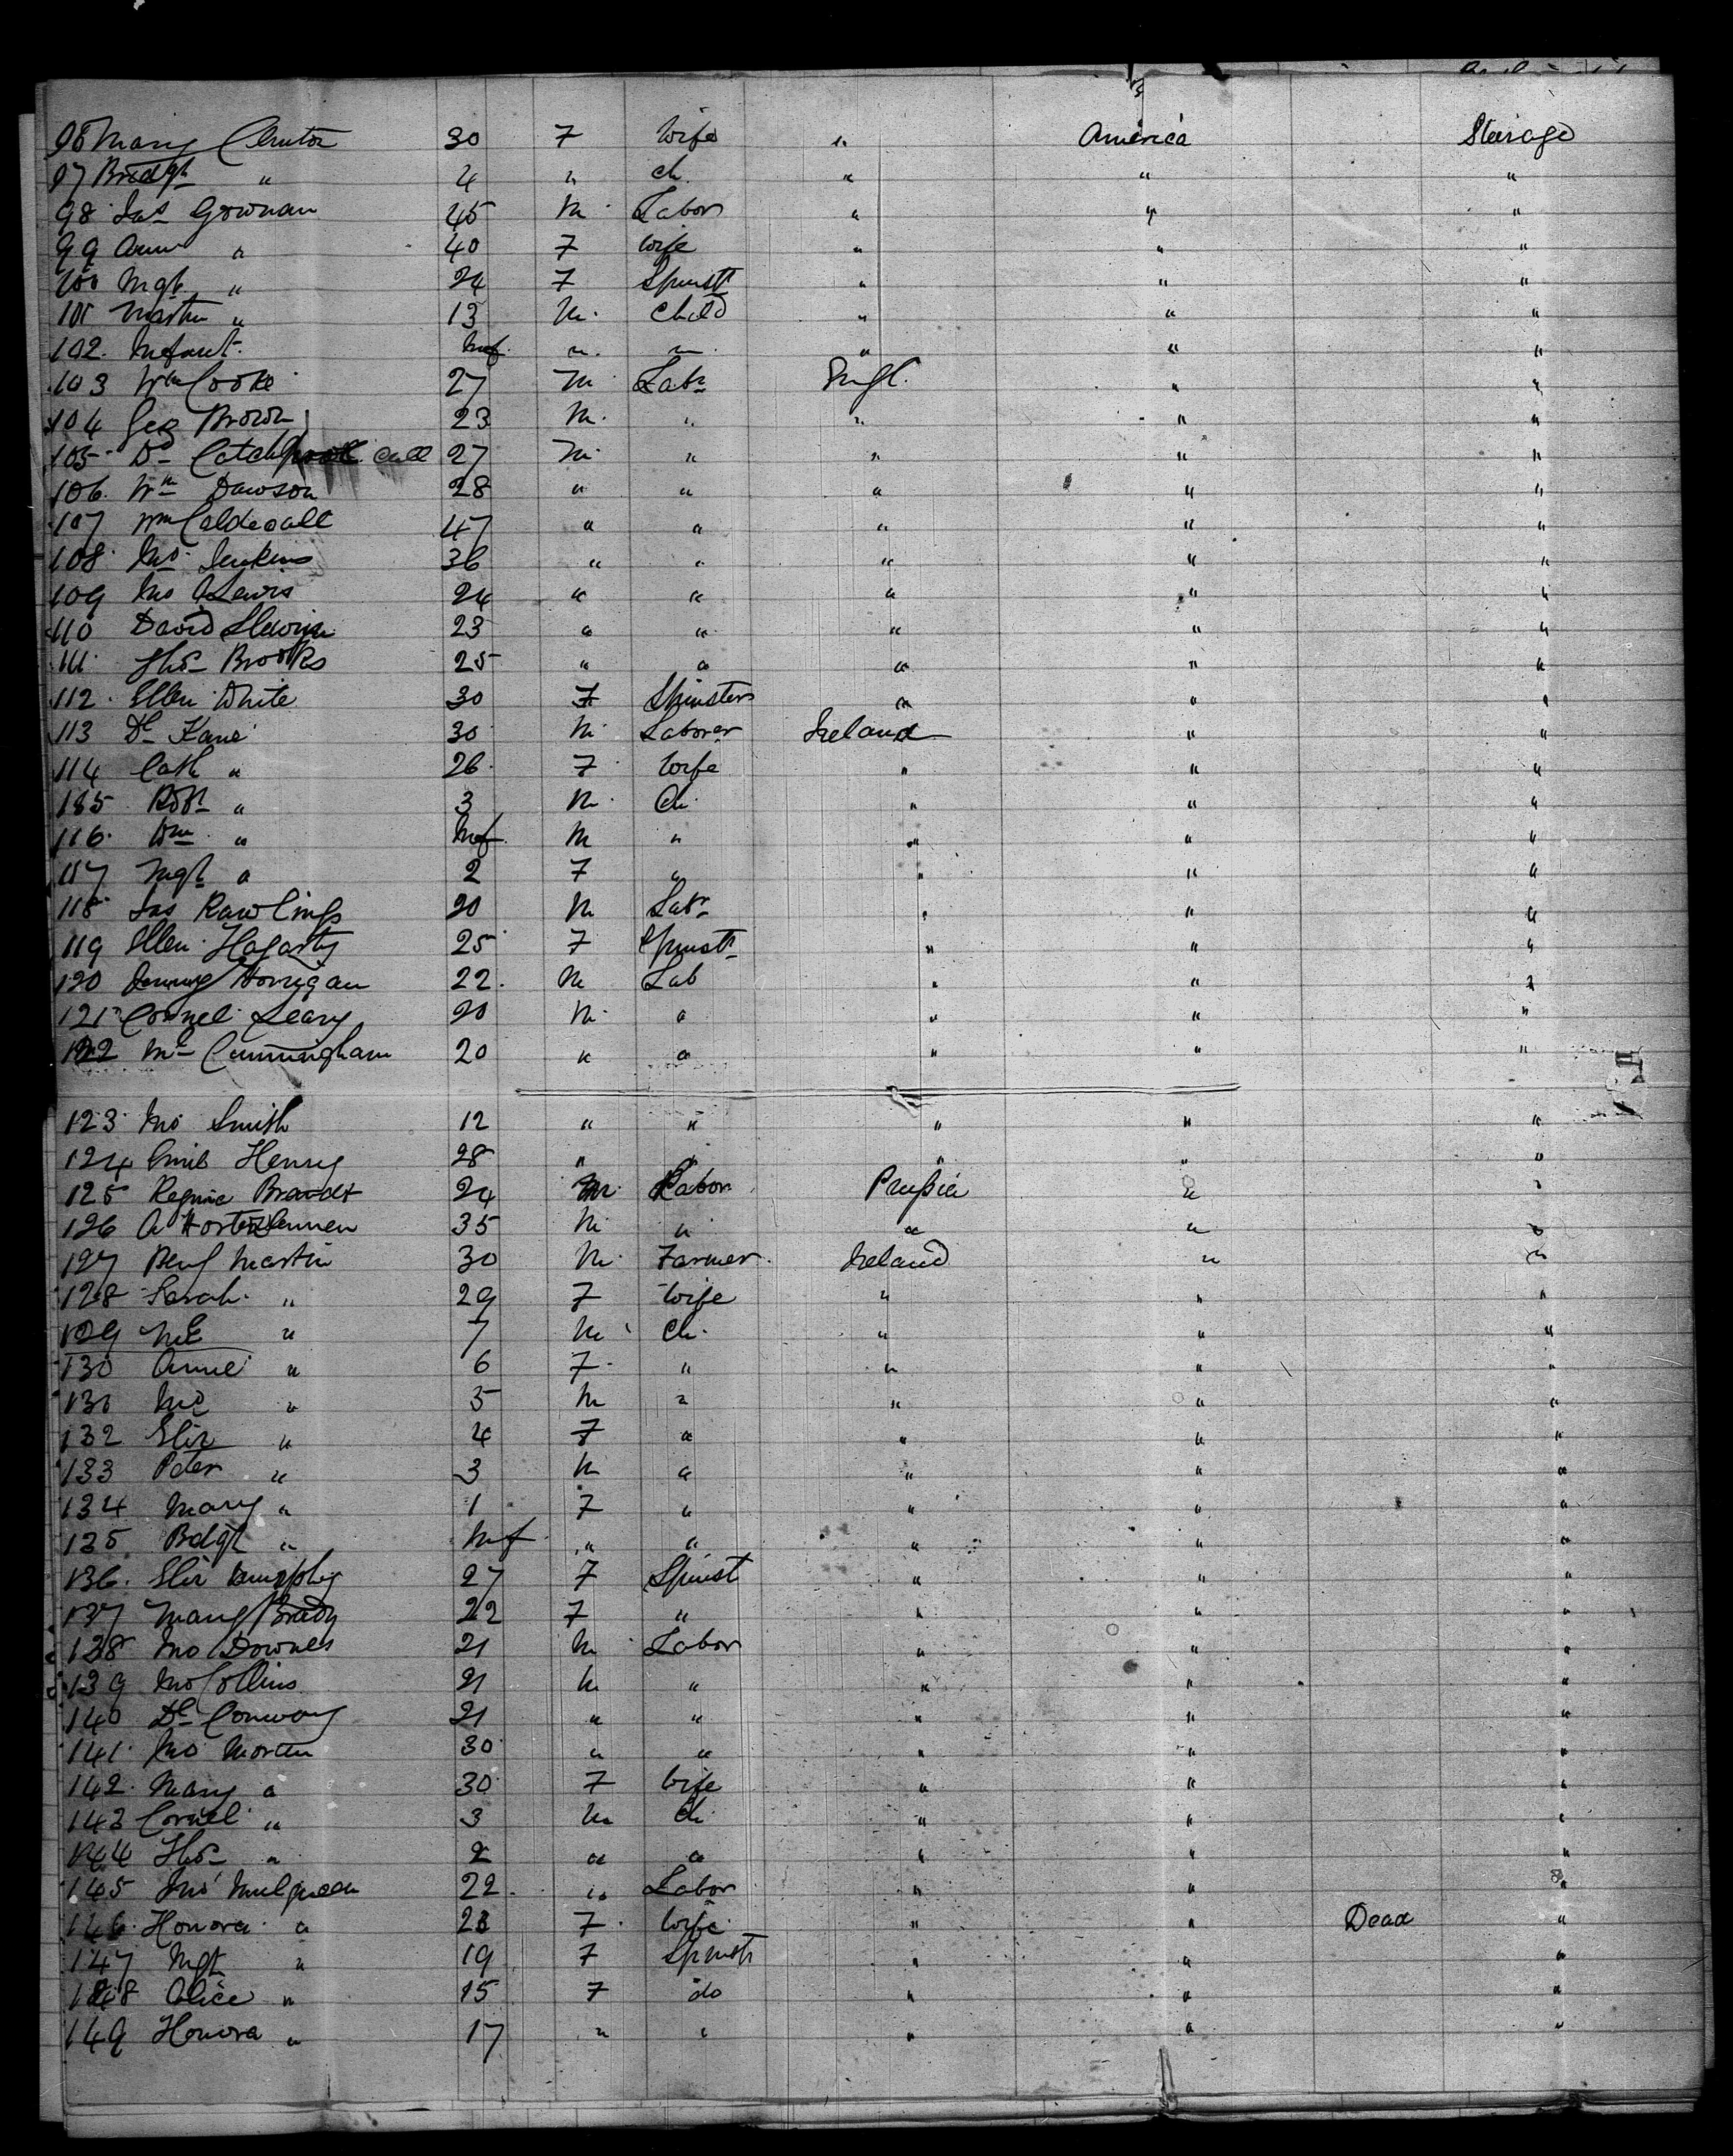 96 Mary Clinton 30 F Wife " America Steerage
97 Bridgt " 4 " ch " " "
98 Jas Gownan 45 M Labor " " "
99 Ann " 40 F wife " " "
100 Mgt " 24 F Spinstr " " "
101 Martin " 13 M. Child " " "
102. Infant. Inf. " " " " "
103 Wm Cooke 27 M Labr Engl. " "
104 Geo Brown 23 M. " " " "
105 Dd Catch call 27 M " " " "
106. Wm Dawson 28 " " " " "
107 Wm Caldecall 47 " " " " "
108 Jno Jenkins 36 " " " " "
109 Jno Lewis 24 " " " " "
110 David 23 " " " " "
111. Thos Brooks 25 " " " " "
112. Ellen White 30 F Spinster " " "
113 Dl Kane 30 M Laborer Ireland " "
114 Cath " 26 F Wife " " "
115 Robt " 3 M Ch. " " "
116. Wm " Inf. M " " " "
117 Mgt " 2 F " " " "
118 Jas Rawlings 20 M Labr " " "
119 Ellen Hogarty 25 F Spinstr " " "
120 Horrigan 22. M Lab " " "
121 Cornel. Leary 20 M. " " " "
122 Ml Cunningham 20 " " " " "
123 Jno Smith 12 " " " " "
124 Emil Henry 28 " " " " "
125 Regina Brandt 24 M. Labor Prussia " "
126 A 35 M " " " "
127 Benj Martin 30 M. Farmer. Ireland " "
128 Sarah " 29 F Wife " " "
129 Ml " 7 M Ch. " " "
130 Anne " 6 F. " " " "
131 Jno " 5 M " " " "
132 Eliz " 4 F " " " "
133 Peter " 3 M " " " "
134 Mary " 1 F " " " "
135. Bdgt " Inf " " " " "
136. Eliz Murphy 27 F Spinst " " "
137 Mary Brady 22 F " " " "
138 Jno Downes 21 M Labor " " "
139 Jno Collins 21 M " " " "
140 Dl Conway 21 " " " " "
141. Jno Morten 30 " " " " "
142. Mary " 30 F Wife " " "
143 Cornel " 3 M Ch " " "
144 Thos " 2 " " " " "
145 Jno Mulqueen 22. " Labor " " "
146. Honora " 23 F. Wife. " " Dead "
147 Mgt " 19 F Spinstr " " "
148 Alice " 15 F do " " "
149 Honora " 17 " " " " "